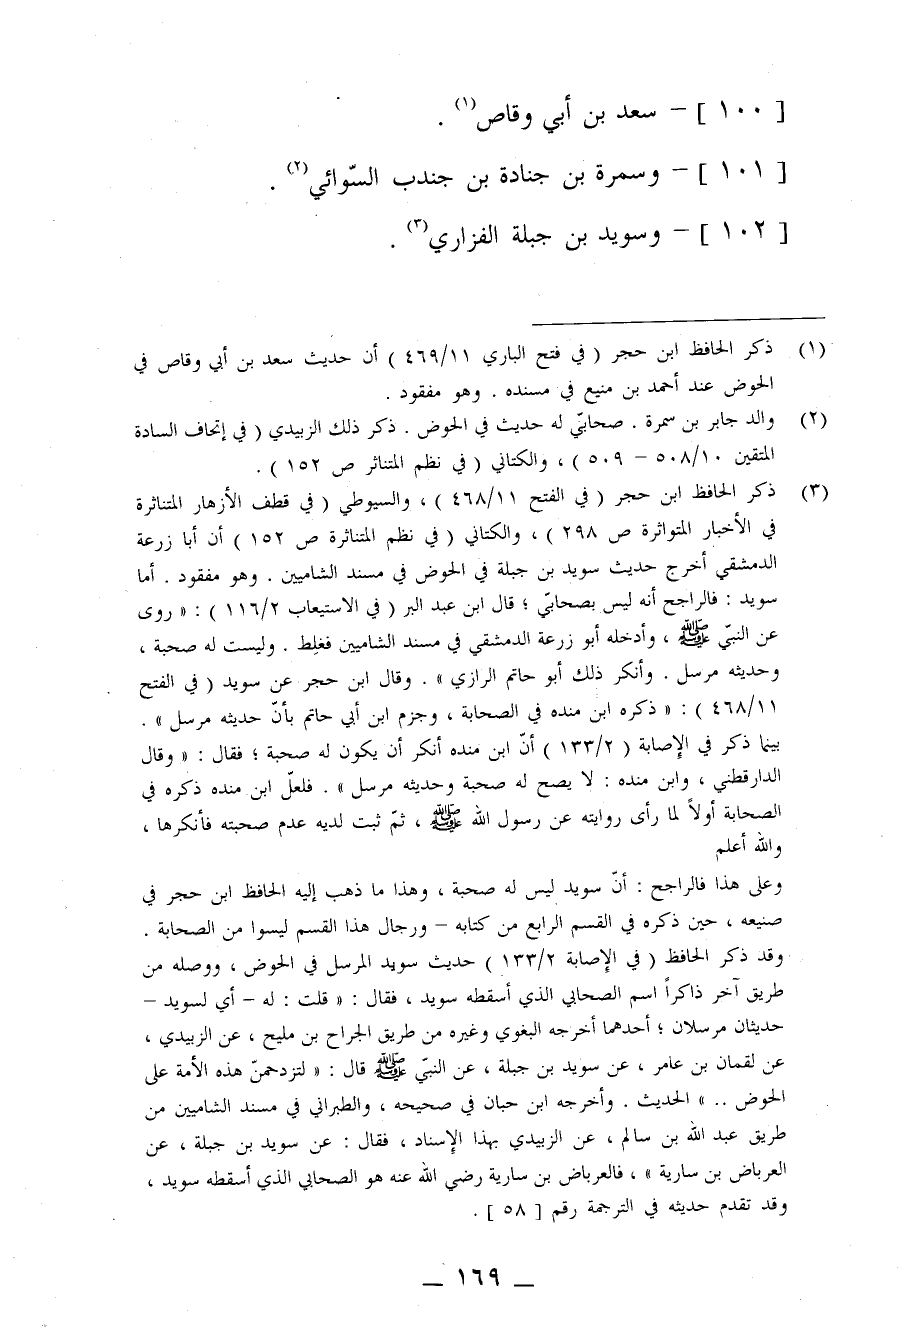 [ ١٠٠ ] – سعد بن أبي وقاص(١) .
[ ١٠١ ] – وسمرة بن جنادة بن جندب السّوائي(٢) .
[ ١٠٢ ] – وسويد بن جبلة الفزاري(٣) .
(١) ذكر الحافظ ابن حجر ( في فتح الباري ٤٦٩/١١ ) أن حديث سعد بن أبي وقاص في
الحوض عند أحمد بن منيع في مسنده . وهو مفقود .
(٢) والد جابر بن سمرة . صحابيّ له حديث في الحوض . ذكر ذلك الزبيدي ( في إتحاف السادة
المتقين ٥٠٨/١٠ – ٥٠٩ ) ، والكتاني ( في نظم المتناثر ص ١٥٢ ) .
(٣) ذكر الحافظ ابن حجر ( في الفتح ٤٦٨/١١ ) ، والسيوطي ( في قطف الأزهار المتناثرة
في الأخبار المتواثرة ص ٢٩٨ ) ، والكتاني ( في نظم المتناثرة ص ١٥٢ ) أن أبا زرعة
الدمشقي أخرج حديث سويد بن جبلة في الحوض في مسند الشاميين . وهو مفقود . أما
سويد : فالراجح أنه ليس بصحابيّ ؛ قال ابن عبد البر ( في الاستيعاب ١١٦/٢ ) : « روى
عن النبيّ ﷺ ، وأدخله أبو زرعة الدمشقي في مسند الشاميين فغلِط . وليست له صحبة ،
وحديثه مرسل . وأنكر ذلك أبو حاتم الرازي » . وقال ابن حجر عن سويد ( في الفتح
٤٦٨/١١ ) : « ذكره ابن منده في الصحابة ، وجزم ابن أبي حاتم بأنّ حديثه مرسل » .
بينما ذكر في الإصابة ( ١٣٣/٢ ) أنّ ابن منده أنكر أن يكون له صحبة ؛ فقال : « وقال
الدارقطني ، وابن منده : لا يصح له صحبة وحديثه مرسل » . فلعلّ ابن منده ذكره في
الصحابة أولاً لما رأى روايته عن رسول الله ﷺ ، ثمّ ثبت لديه عدم صحبته فأنكرها ،
والله أعلم
وعلى هذا فالراجح : أنّ سويد ليس له صحبة ، وهذا ما ذهب إليه الحافظ ابن حجر في
صنيعه ، حين ذكره في القسم الرابع من كتابه – ورجال هذا القسم ليسوا من الصحابة .
وقد ذكر الحافظ ( في الإصابة ١٣٣/٢ ) حديث سويد المرسل في الحوض ، ووصله من
طريق آخر ذاكراً اسم الصحابي الذي أسقطه سويد ، فقال : « قلت : له – أي لسويد –
حديثان مرسلان ؛ أحدهما أخرجه البغوي وغيره من طريق الجراح بن مليح ، عن الزبيدي ،
عن لقمان بن عامر ، عن سويد بن جبلة ، عن النبيّ ﷺ قال : « لتزدحمنّ هذه الأمة على
الحوض .. » الحديث . وأخرجه ابن حبان في صحيحه ، والطبراني في مسند الشاميين من
طريق عبد الله بن سالم ، عن الزبيدي بهذا الإسناد ، فقال : عن سويد بن جبلة ، عن
العرباض بن سارية » ، فالعرباض بن سارية رضي الله عنه هو الصحابي الذي أسقطه سويد ،
وقد تقدم حديثه في الترجمة رقم [ ٥٨ ] .
– ١٦٩ –